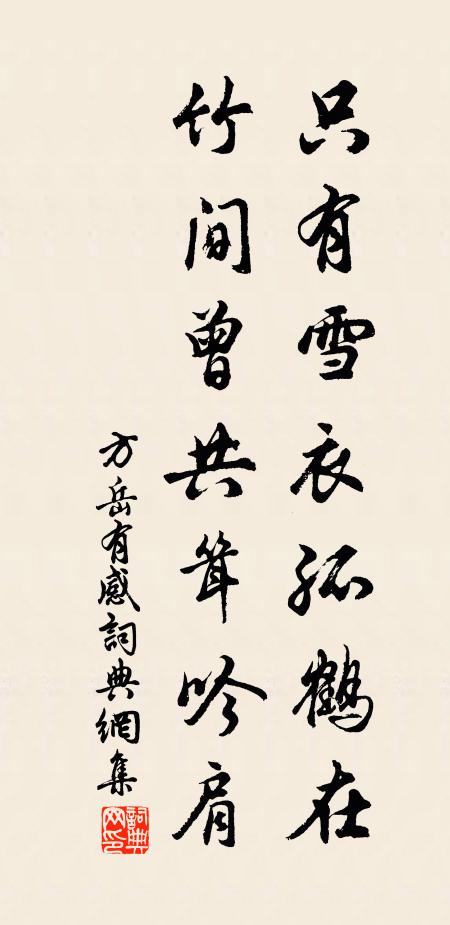 只有雪衣孤鶴在
竹間曾共聳吟肩
方岳有感詞典網集
詞典网印